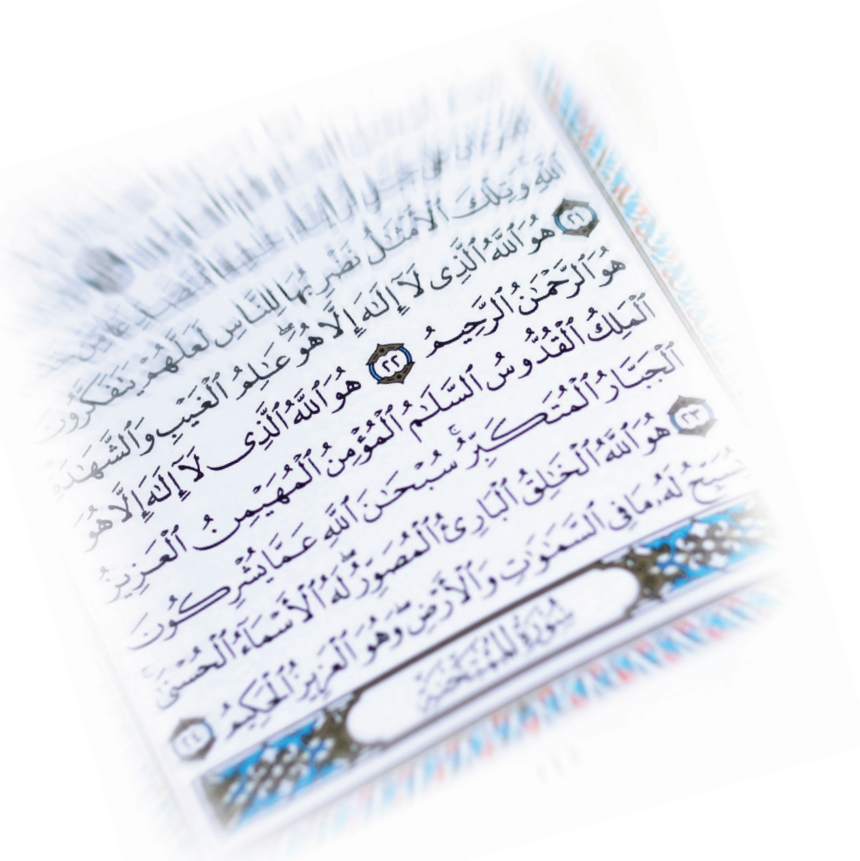 ٱللَّهِ وَتِلْكَ ٱلْأَمْثَٰلُ نَضْرِبُهَا لِلنَّاسِ لَعَلَّهُمْ يَتَفَكَّرُونَ
٢١ هُوَ ٱللَّهُ ٱلَّذِى لَآ إِلَٰهَ إِلَّا هُوَ ۖ عَٰلِمُ ٱلْغَيْبِ وَٱلشَّهَٰدَةِ
هُوَ ٱلرَّحْمَٰنُ ٱلرَّحِيمُ ٢٢ هُوَ ٱللَّهُ ٱلَّذِى لَآ إِلَٰهَ إِلَّا هُوَ
ٱلْمَلِكُ ٱلْقُدُّوسُ ٱلسَّلَٰمُ ٱلْمُؤْمِنُ ٱلْمُهَيْمِنُ ٱلْعَزِيزُ
ٱلْجَبَّارُ ٱلْمُتَكَبِّرُ ۚ سُبْحَٰنَ ٱللَّهِ عَمَّا يُشْرِكُونَ
٢٣ هُوَ ٱللَّهُ ٱلْخَٰلِقُ ٱلْبَارِئُ ٱلْمُصَوِّرُ ۖ لَهُ ٱلْأَسْمَآءُ ٱلْحُسْنَىٰ ۚ
يُسَبِّحُ لَهُۥ مَا فِى ٱلسَّمَٰوَٰتِ وَٱلْأَرْضِ ۖ وَهُوَ ٱلْعَزِيزُ ٱلْحَكِيمُ ٢٤
سُورَةُ المُمْتَحَنَةِ